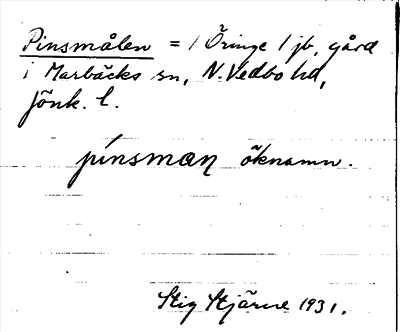 Pinsmålen = 1 Öringe 1 jb, gård
i Marbäcks sn, N. Vedbo hd,
Jönk. l.
pinsman öknamn.
Stig Stjärne 1931.